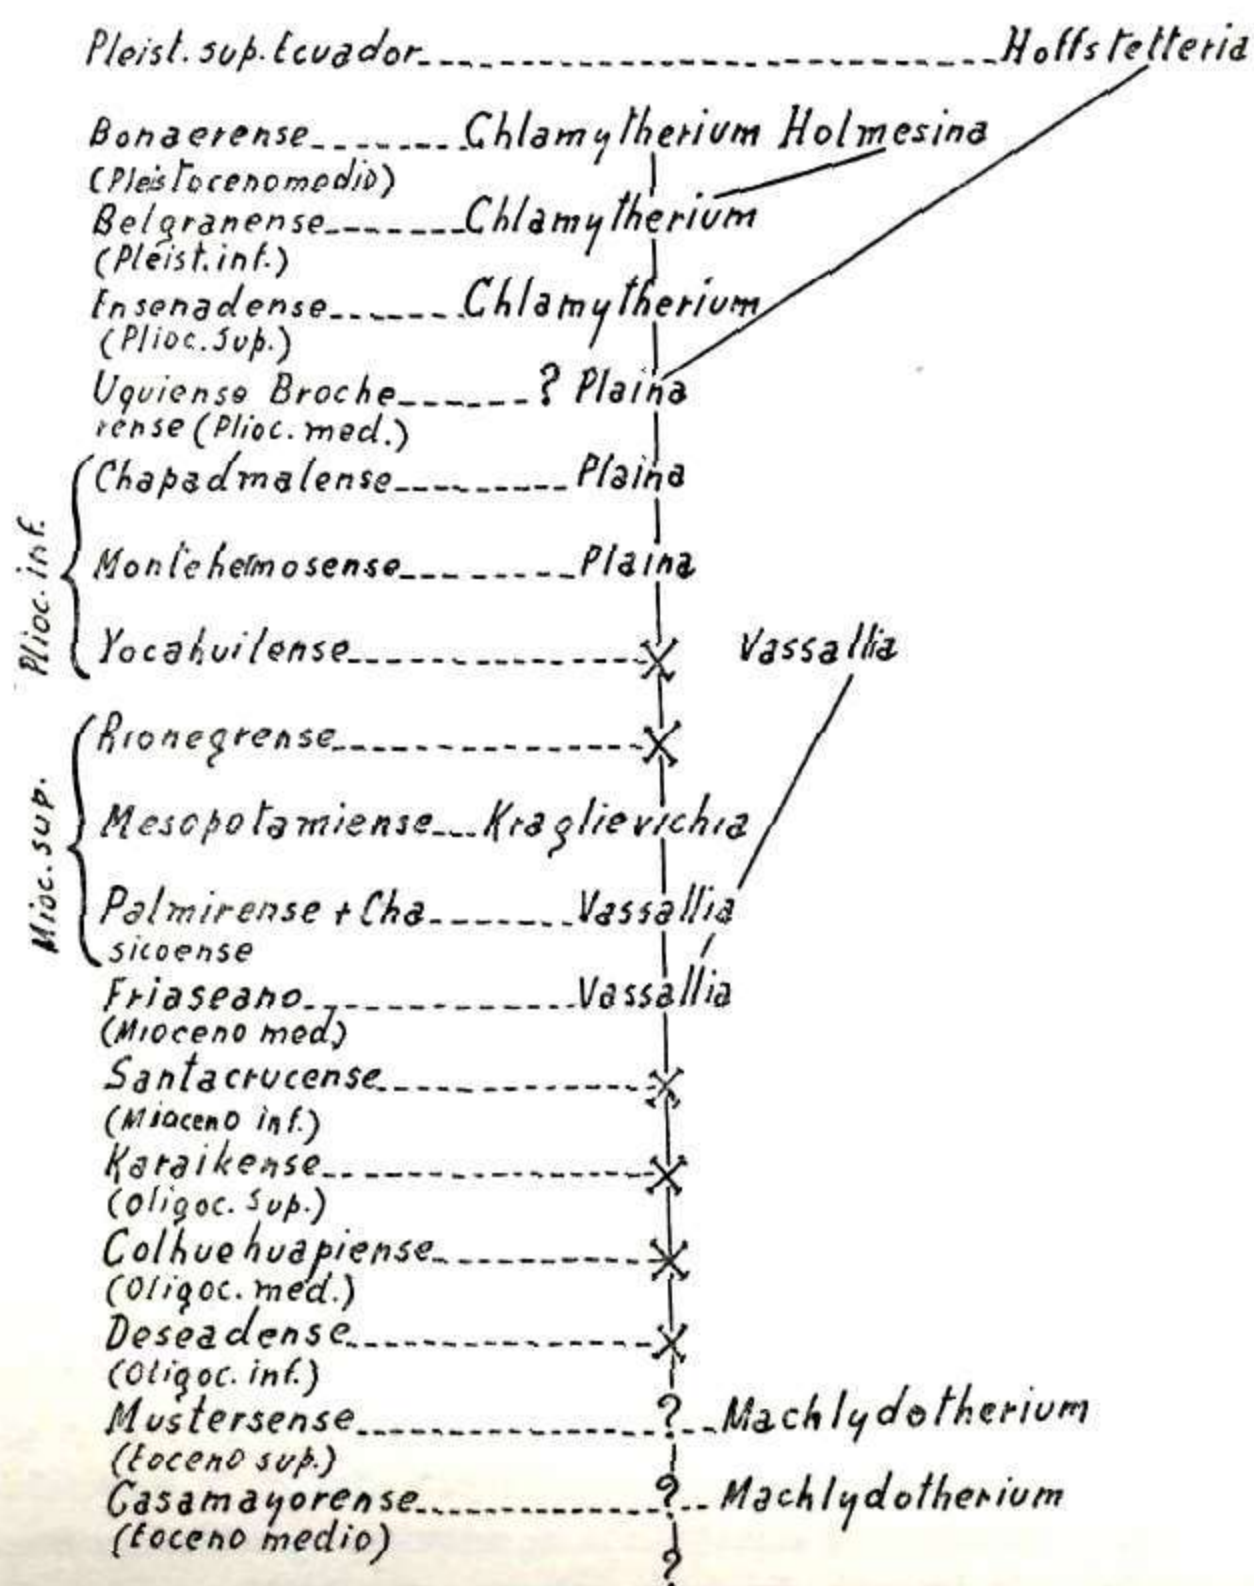 Pleist. sup. Ecuador Hoffstetteria
Bonaerense Chlamytherium Holmesina
(Pleistocenomedio)
Belgranense Chlamytherium
(Pleist. inf.)
Ensenadense Chlamytherium
(Plioc. Sup.)
Uquiense Broche ? Plaina
rense (Plioc. med.)
Plioc. inf.
Chapadmalense Plaina
Montehermosense Plaina
Yocahuilense Vassallia
Mioc. sup.
Rionegrense
Mesopotamiense Kraglievichia
Palmirense + Cha Vassallia
sicoense
Friaseano Vassallia
(Mioceno med.)
Santacrucense
(Mioceno inf.)
Karaikense
(Oligoc. Sup.)
Colhuehuapiense
(Oligoc. med.)
Deseadense
(Oligoc. inf.)
Mustersense ? Machlydotherium
(Eoceno sup.)
Casamayorense ? Machlydotherium
(Eoceno medio)
?